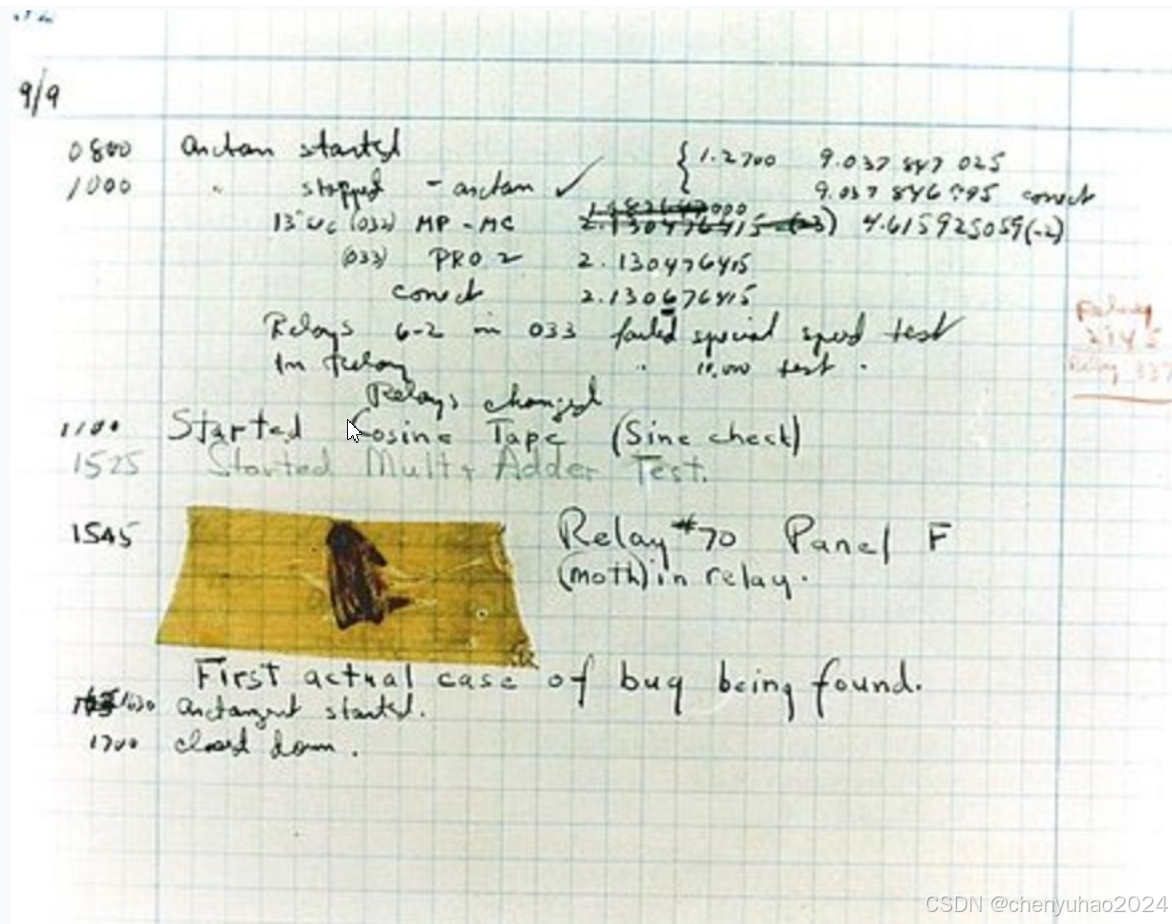 9/9
0800 Arctan started { 1.2700 9.037 847 025
1000 " stopped - arctan ✓ 9.037 846 995 correct
13"uc (032) MP - MC 2.130476415 (-3) 4.615925059(-2)
(033) PRO 2 2.130476415
correct 2.130676415
Relays 6-2 in 033 failed special speed test
In Relay " 10,000 test .
Relay
2145
Relay 337
Relays changed
1100 Started Cosine Tape (Sine check)
1525 Started Mult+ Adder Test.
1545 Relay #70 Panel F
(moth) in relay.
First actual case of bug being found.
1630 Arctangent started.
1700 closed down.
CSDN @chenyuhao2024